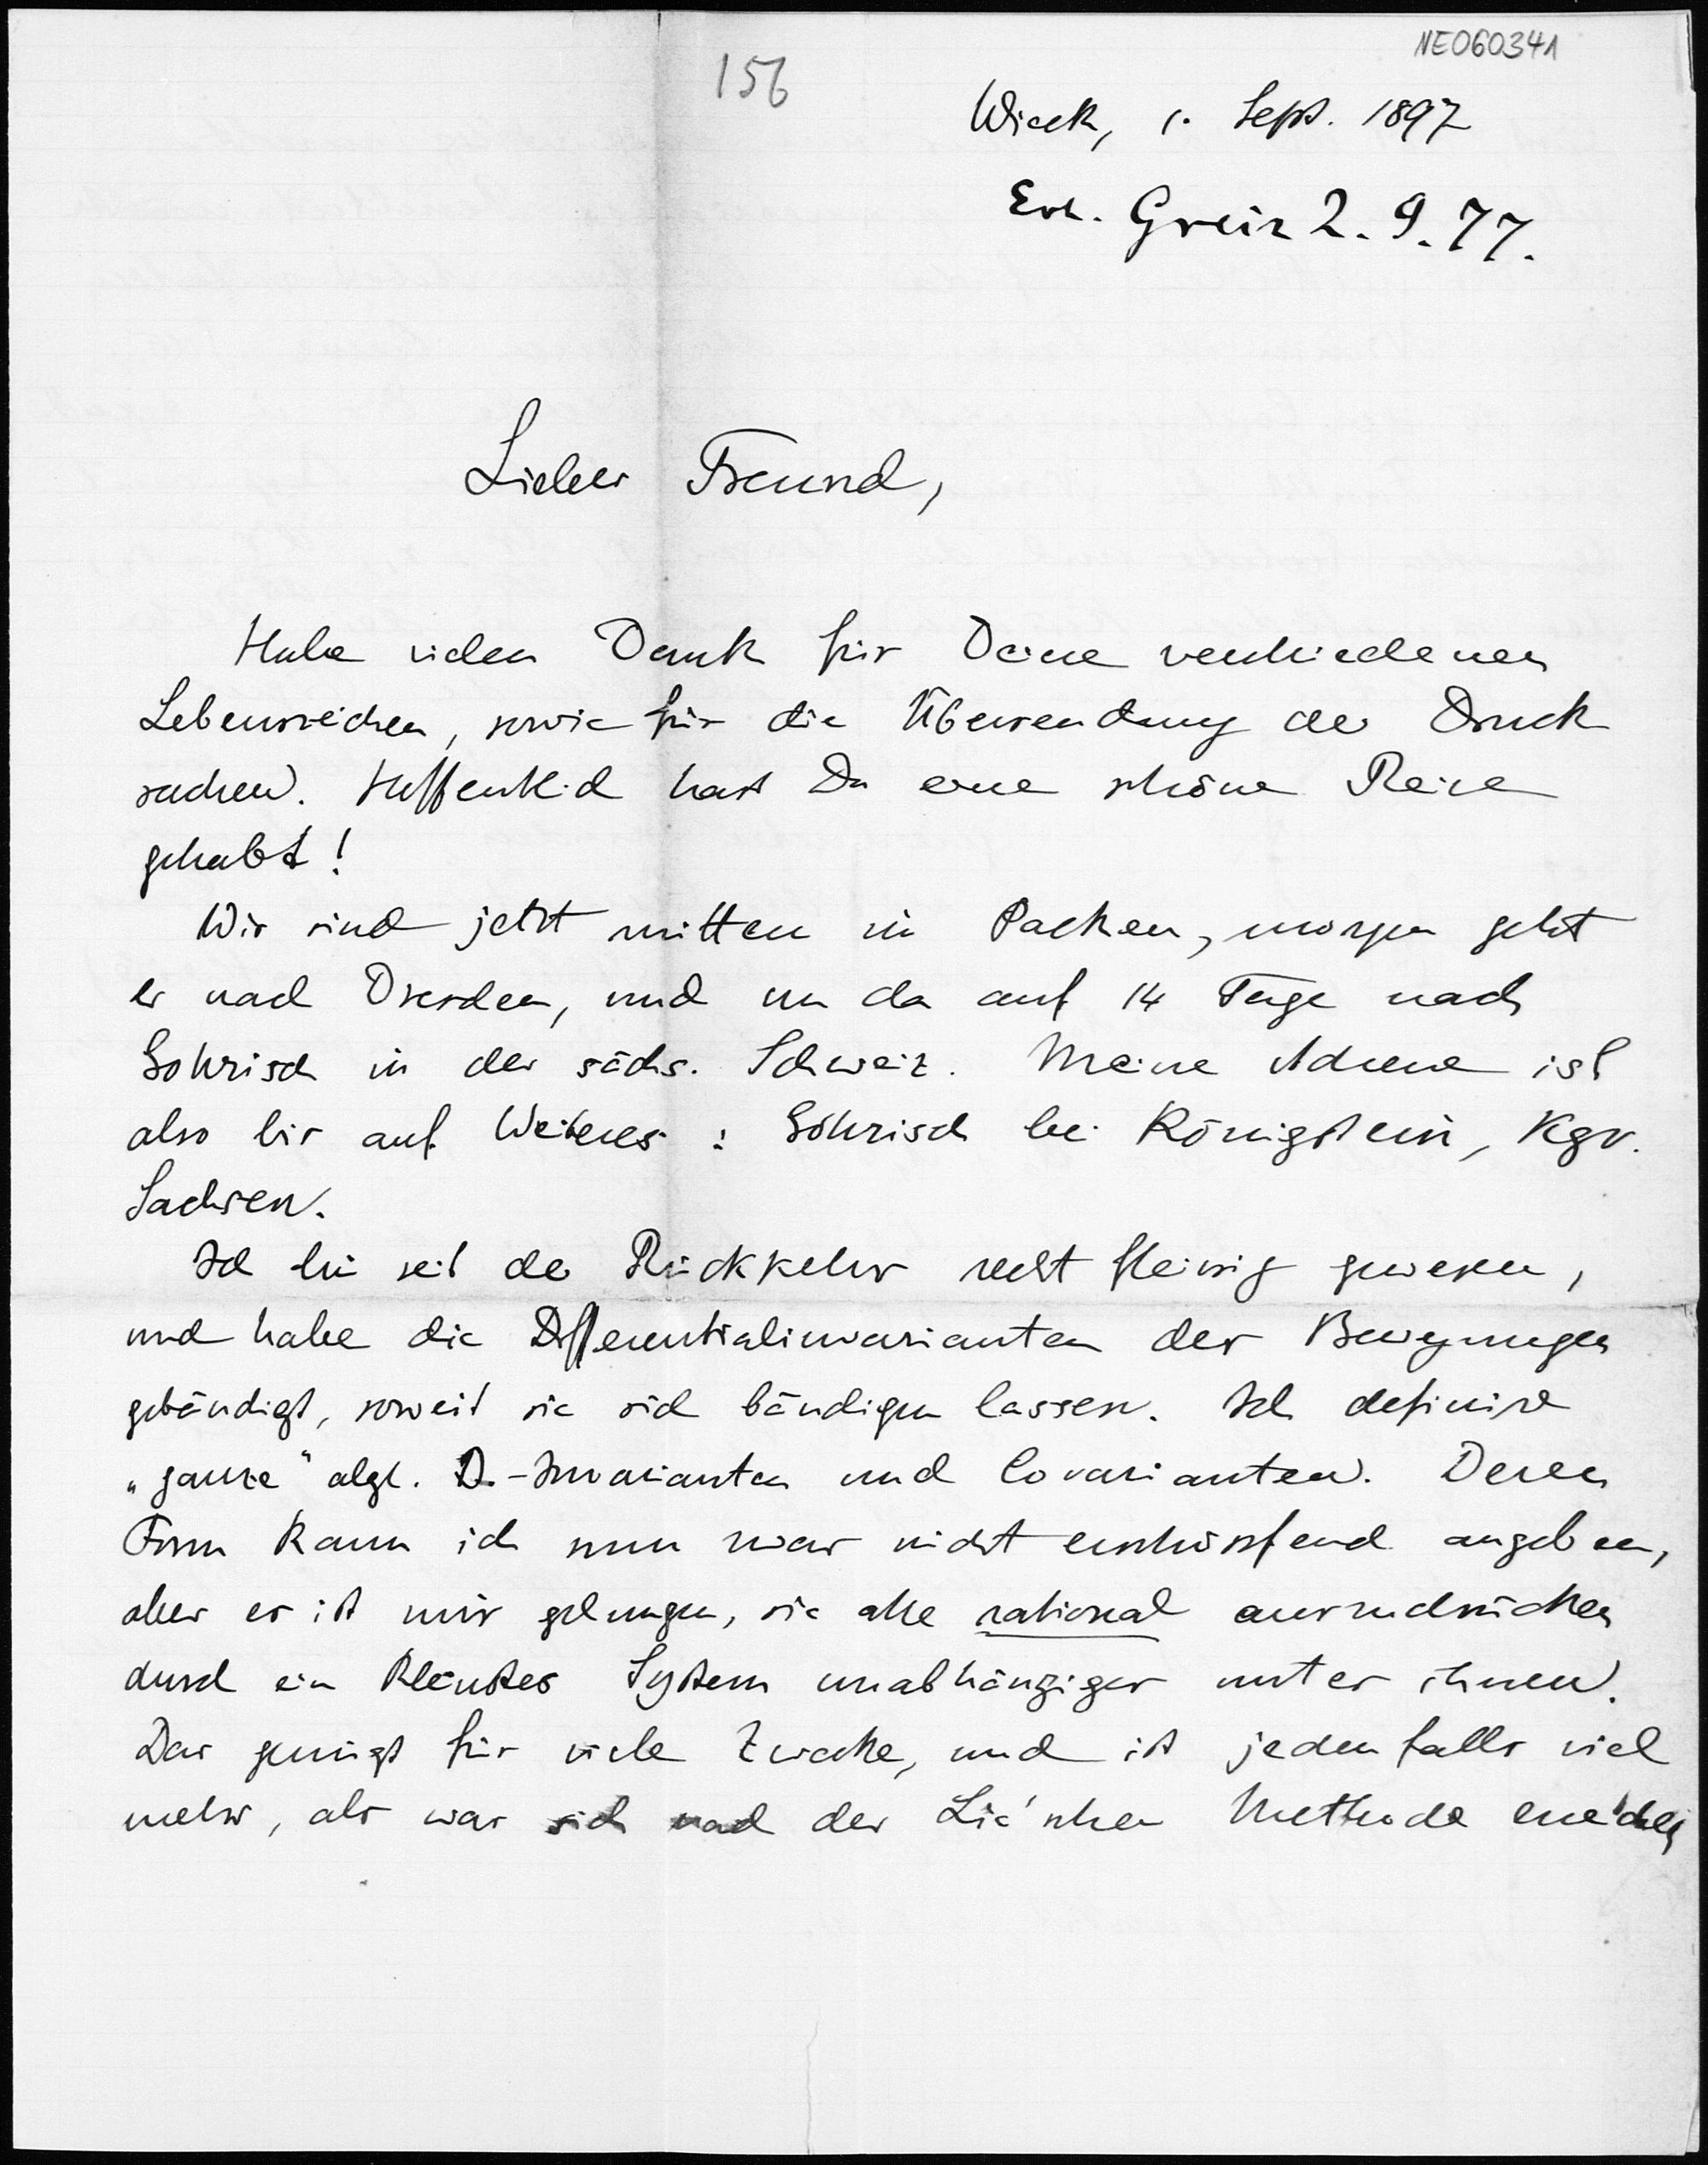 NE060341
156
Wieck, 1. Sept. 1897
Erh. Greiz 2. 9. 97.
Lieber Freund,
Habe vielen Dank für Deine verschiedenen
Lebenszeichen, sowie für die Übersendung der Druck
sachen. Hoffentlich hast Du eine schöne Reise
gehabt!
Wir sind jetzt mitten im Packen, morgen geht
es nach Dresden, und von da auf 14 Tage nach
Gohrisch in der sächs. Schweiz. Meine Adresse ist
also bis auf Weiteres: Gohrisch bei Königstein, Kgr.
Sachsen.
Ich bin seit der Rückkehr recht fleissig gewesen,
und habe die Differentialinvarianten der Bewegungen
gebändigt, soweit sie sich bändigen lassen. Ich definire
„ganze" algt. D.-Invarianten und Covarianten. Deren
Form kann ich nun zwar nicht erschöpfend angeben,
aber es ist mir gelungen, sie alle rational auszudrücken
durch ein kleinstes System unabhängiger unter ihnen.
Das genügt für viele Zwecke, und ist jedenfalls viel
mehr, als was sich nach der Lie'schen Methode erreichen